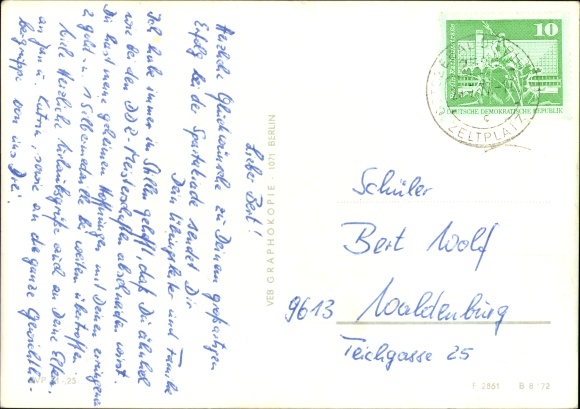 Lieber Bert!
Herzliche Glückwünsche zu Deinem großartigen
Erfolg bei der Spartakiade sendet Dir
Dein Übungsleiter und Familie
Ich habe immer im Stillen gehofft, daß Du ähnlich
wie bei den DDR-Meisterschaften abschneiden wirst.
Du hast meine geheimen Hoffnungen mit Deinen errungenen
2 Gold u. 1 Silbermedaille bei weitem übertroffen.
Viele Herzliche Urlaubsgrüße auch an Deine Eltern,
an Jens u. Katrin, sowie an die ganze
begruppe von uns Drei!
VEB GRAPHOKOPIE · 1071 BERLIN
10
DEUTSCHE DEMOKRATISCHE REPUBLIK
ZELTPLATZ
Schüler
Bert Wolf
9613 Waldenburg
Teichgasse 25
F 2881 B 8/72